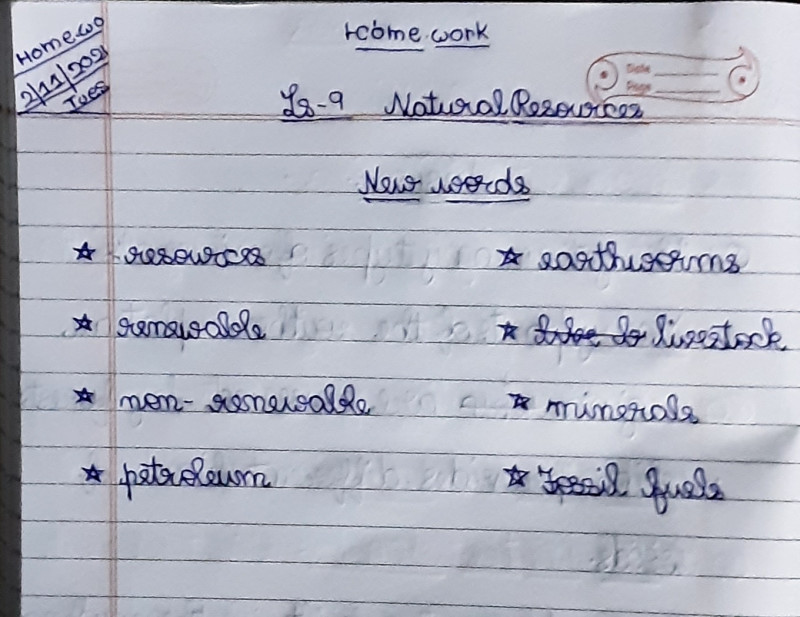 Home work
Home.wo
2/11/2021
Tues
Date
Page
Ls-9 Natural Resources
New words
☆ resources ☆ earthworms
☆ renewable ☆ livestock
☆ non-renewable ☆ minerals
☆ petroleum ☆ Fossil fuels